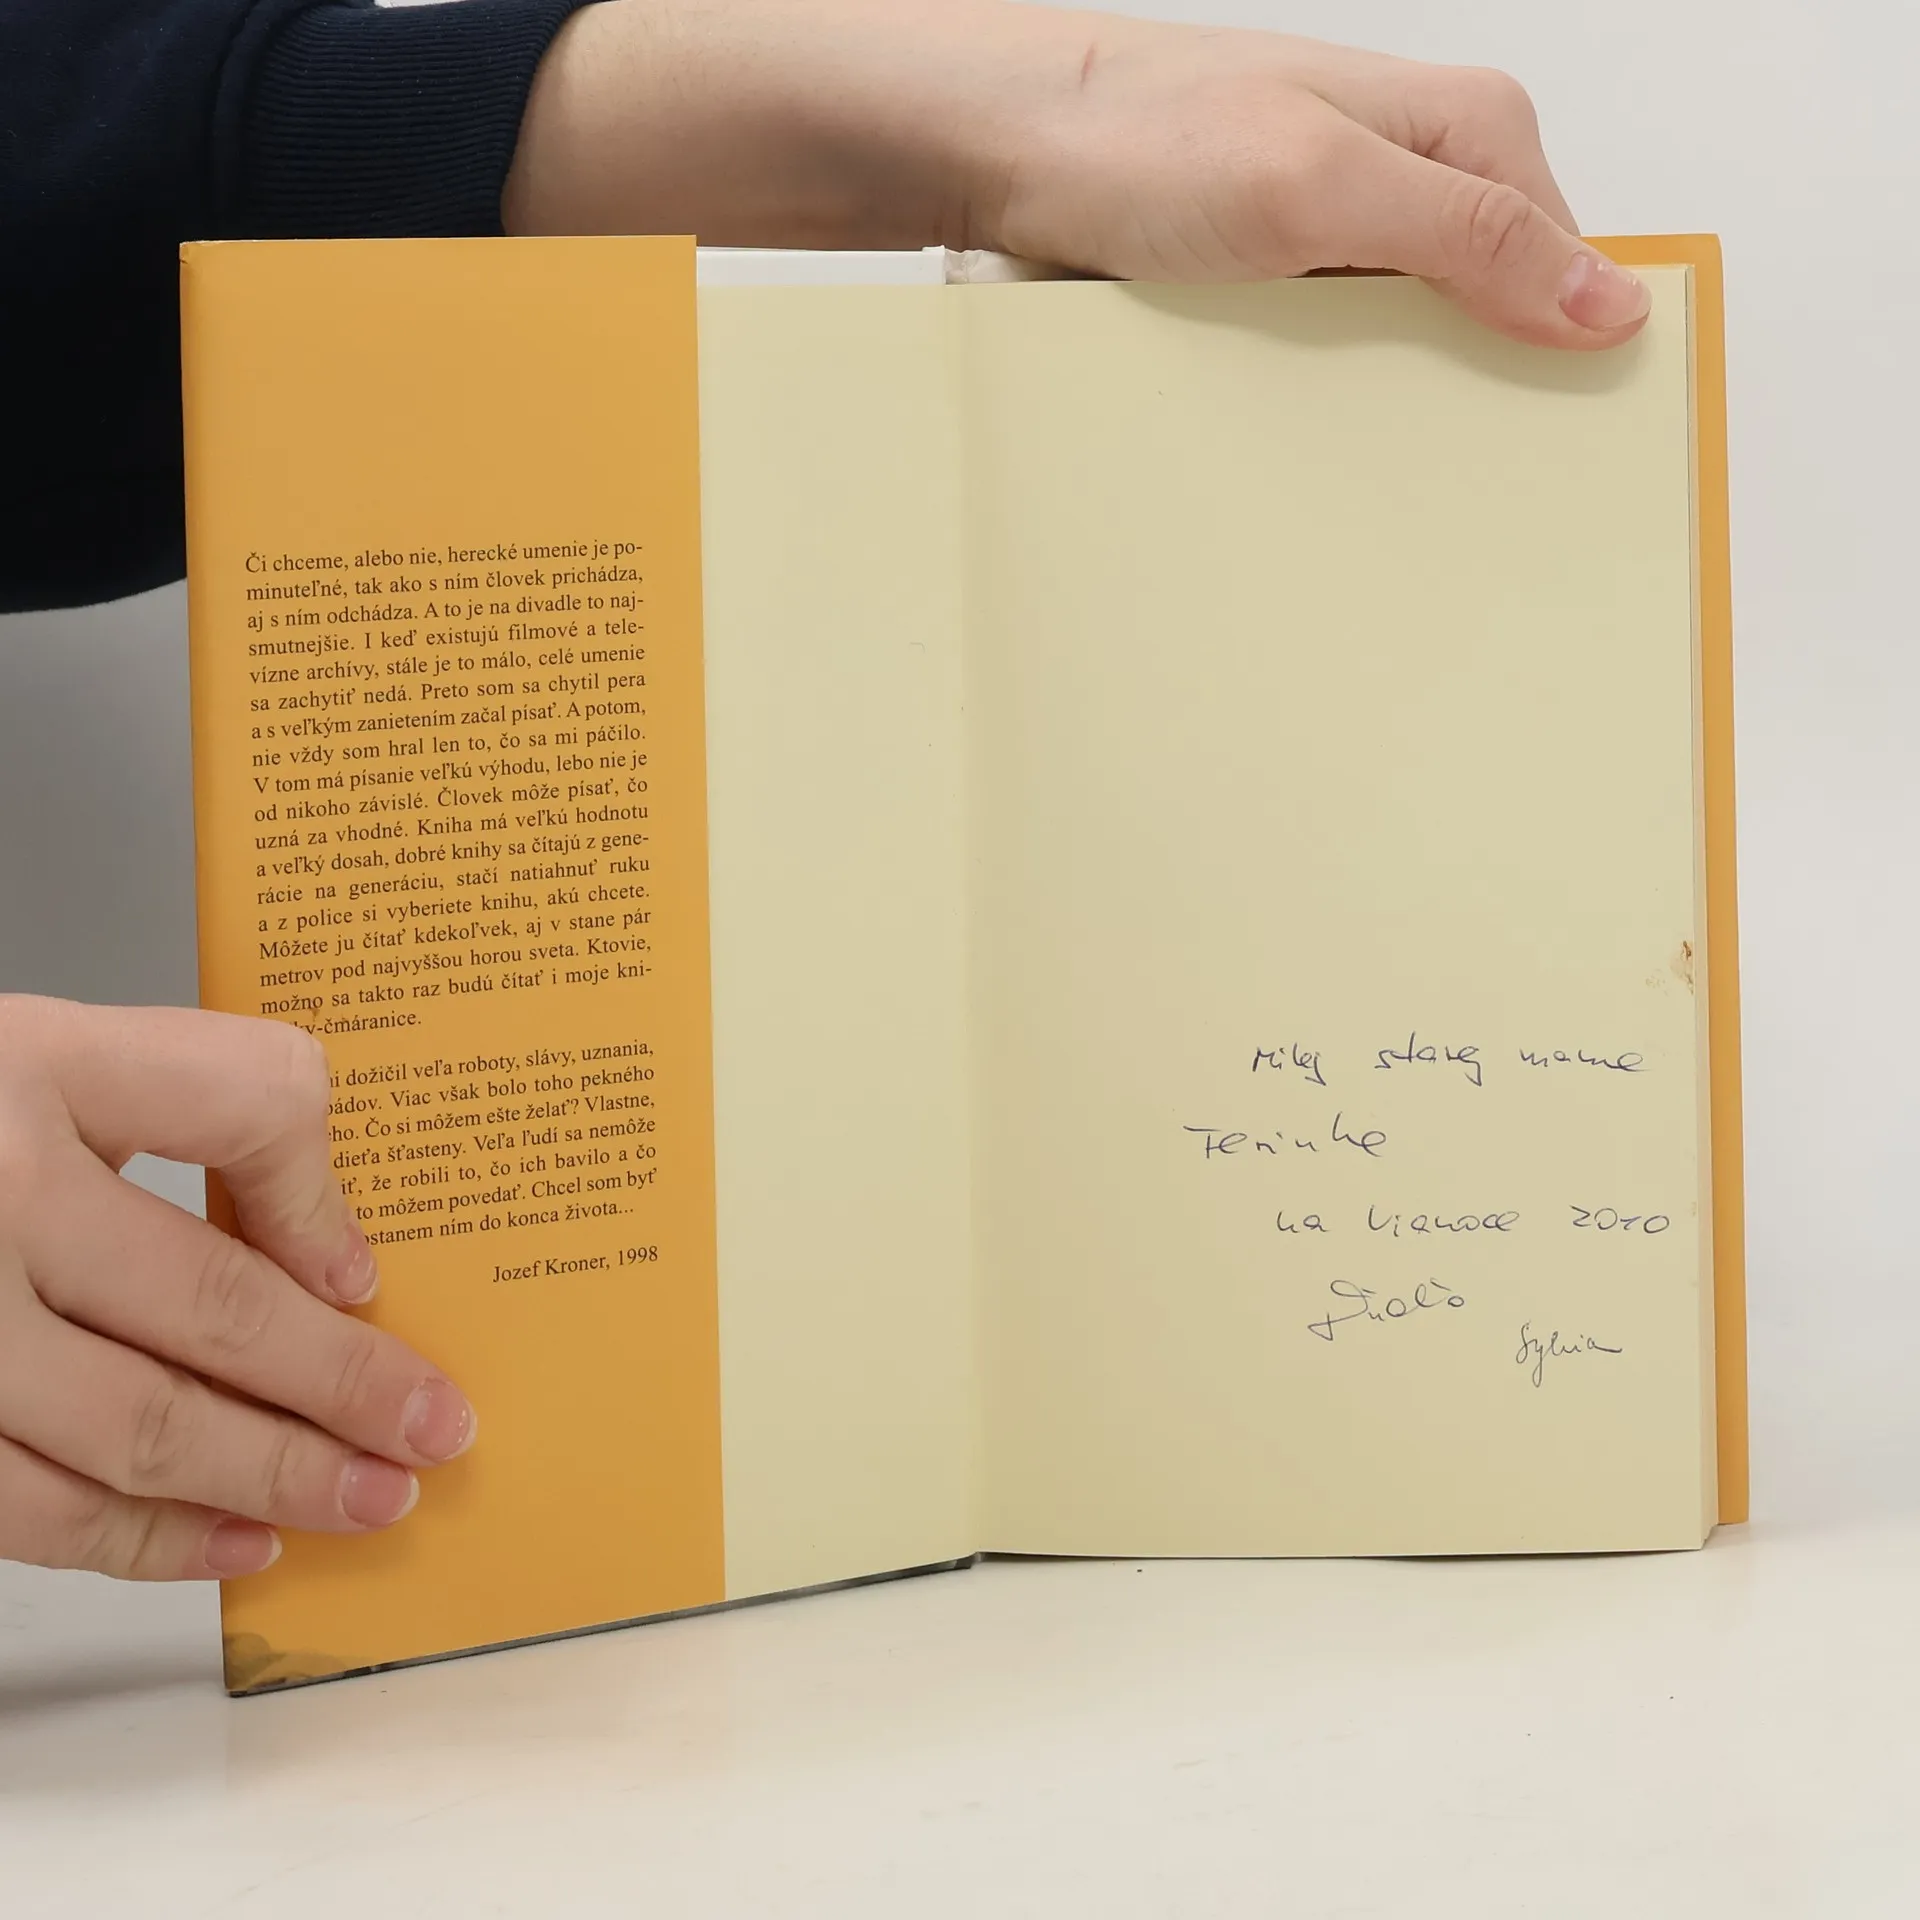 Či chceme, alebo nie, herecké umenie je po-
minuteľné, tak ako s ním človek prichádza,
aj s ním odchádza. A to je na divadle to naj-
smutnejšie. I keď existujú filmové a tele-
vízne archívy, stále je to málo, celé umenie
sa zachytiť nedá. Preto som sa chytil pera
a s veľkým zanietením začal písať. A potom,
nie vždy som hral len to, čo sa mi páčilo.
V tom má písanie veľkú výhodu, lebo nie je
od nikoho závislé. Človek môže písať, čo
uzná za vhodné. Kniha má veľkú hodnotu
a veľký dosah, dobré knihy sa čítajú z gene-
rácie na generáciu, stačí natiahnuť ruku
a z police si vyberiete knihu, akú chcete.
Môžete ju čítať kdekoľvek, aj v stane pár
metrov pod najvyššou horou sveta. Ktovie,
možno sa takto raz budú čítať i moje kni-
ky-čmáranice.
dožičil veľa roboty, slávy, uznania,
pádov. Viac však bolo toho pekného
Čo si môžem ešte želať? Vlastne,
dieťa šťasteny. Veľa ľudí sa nemôže
že robili to, čo ich bavilo a čo
to môžem povedať. Chcel som byť
ostanem ním do konca života...
Jozef Kroner, 1998
Milej starej mame
Terinke
na Vianoce 2010
Sylvia